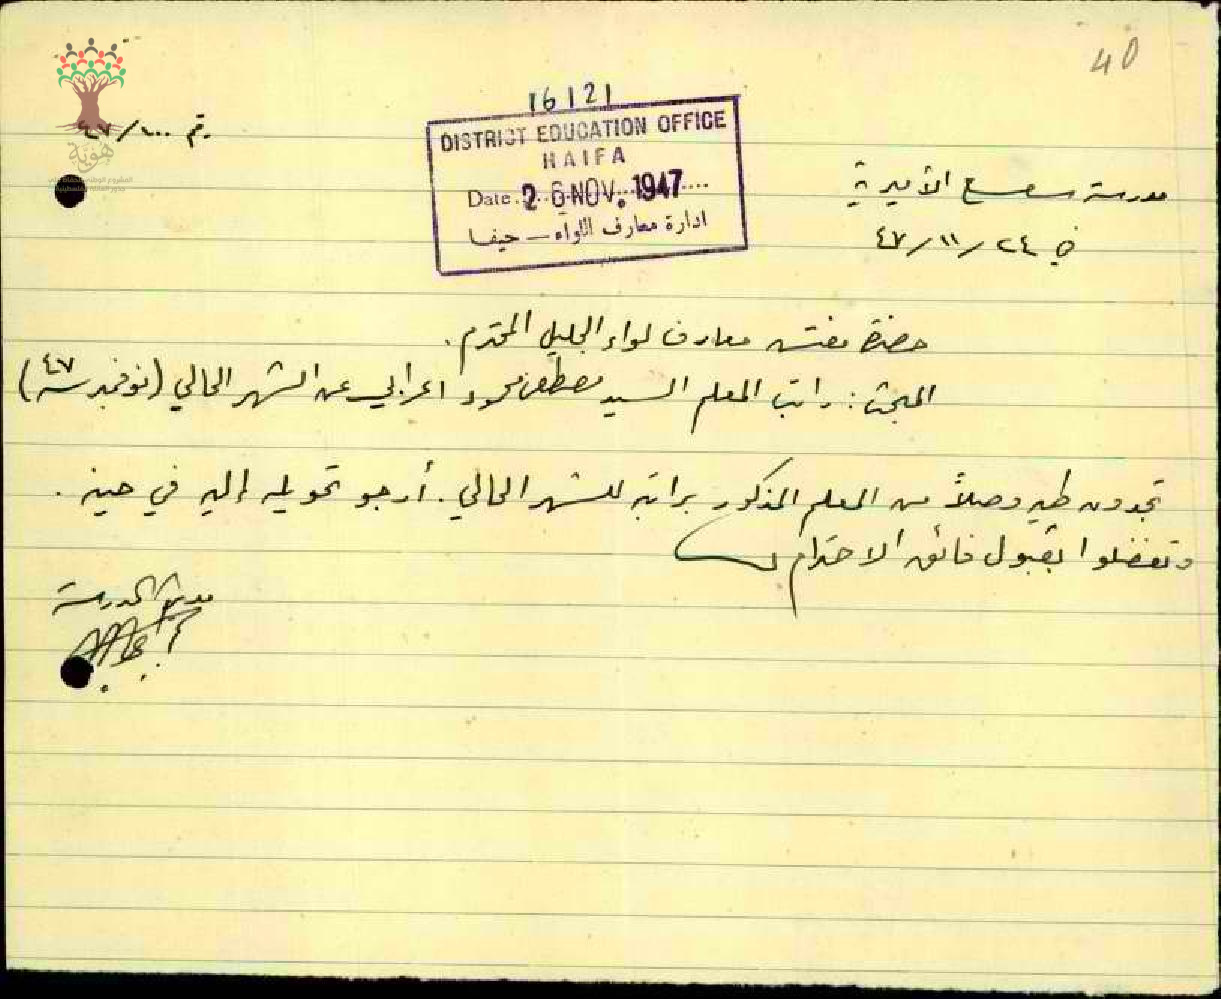 40
16121
رقم ١٠٠/٤٧
DISTRICT EDUCATION OFFICE
HAIFA
Date 26 NOV. 1947
ادارة معارف اللواء — حيفا
مدرسة سعسع الأميرية
في ٢٤/١١/٤٧
هوية
حضرة مفتش معارف لواء الجليل المحترم.
المبحث: راتب المعلم السيد مصطفى محمود اعرابي عن الشهر الحالي (نوفمبر سنة ٤٧)
تجدون طيه وصلاً من المعلم المذكور براتبه للشهر الحالي. أرجو تحويله إليه في حينه.
وتفضلوا بقبول فائق الاحترام
مدير المدرسة